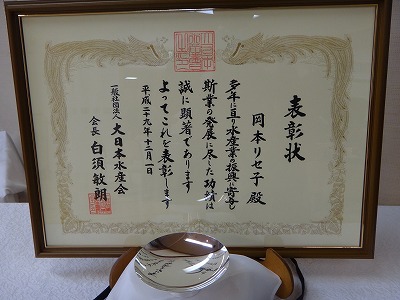 表彰状
岡本リセ子殿
多年に亘り水産業の振興に寄与し
斯業の発展に尽した功績は
誠に顕著であります
よってこれを表彰します
平成二十九年十二月一日
一般社団法人 大日本水産会
会長 白須敏朗